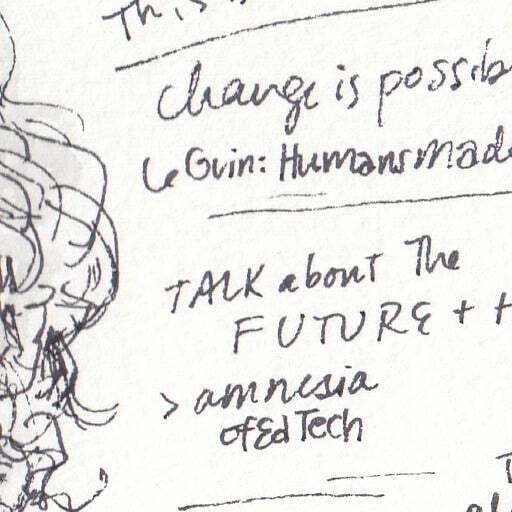 This is
change is possib
Le Guin: Humans mad
TALK about The
FUTURE + H
> amnesia
of Ed Tech